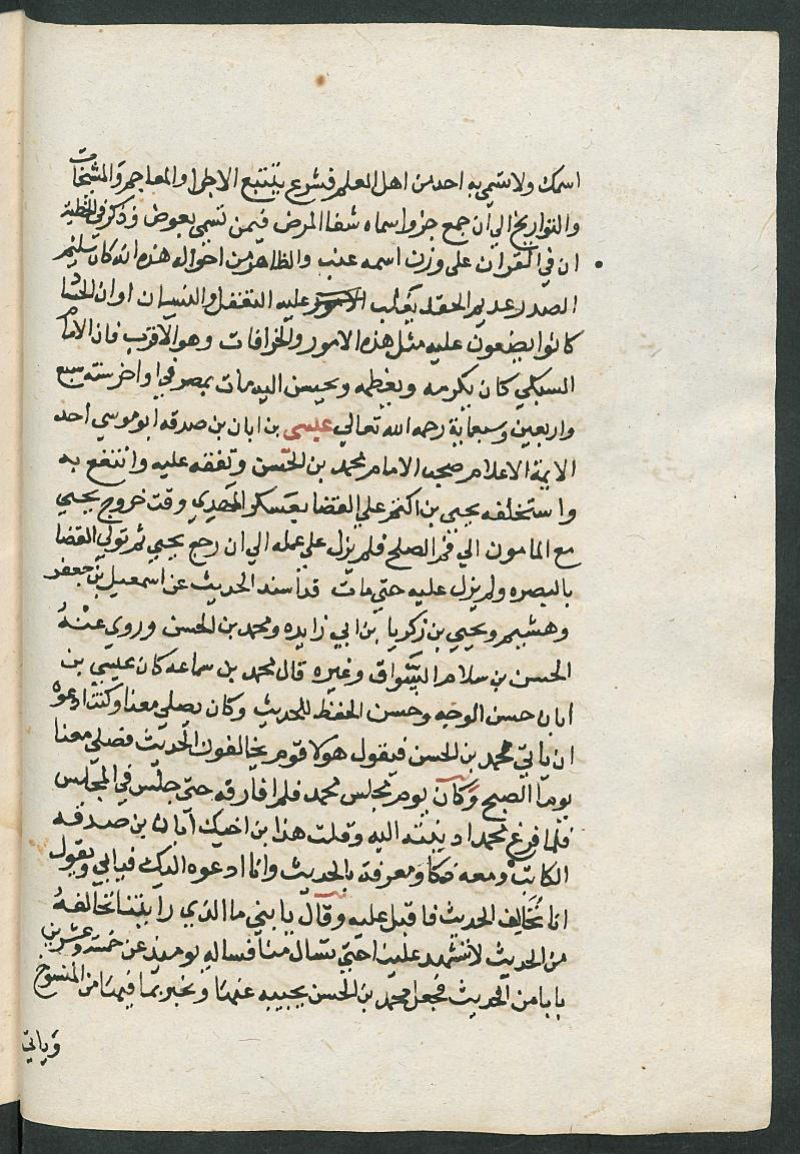 اسمك ولا تسمي به احد من اهل العلم فشرع يتتبع الاجزا والمعاجم والمشيخات
والتواريخ الي ان جمع جزوا سماه شفا المرض فيمن تسمي بعوض وذكر في الخطبة
ان في القران علي وزن اسمه عنب والظاهر من احواله هذه انه كان سليم
الصدر عديم الحقد يغلب عليه التغفل والنسيان او ان
كانوا يضعون عليه مثل هذه الامور والخرافات وهو الاقرب فان الامام
السبكي كان يكرمه ويعظمه ويحسن اليه مات بمصر في اواخر سنه سبع
واربعين وسبعماية رحمه الله تعالي عيسى بن ابان بن صدقه ابو موسي احد
الايمة الاعلام صحب الامام محمد بن الحسن وتفقه عليه وانتفع به
واستخلفه يحيي بن اكثم علي القضا بعسكر المهدي وقت خروج يحيي
مع المامون الي فم الصلح فلم يزل علي عمله الي ان رجع يحيي ثم تولي القضا
بالبصره ولم يزل عليه حتي مات قد اسند الحديث عن اسمعيل بن جعفر
وهشيم ويحيي بن زكريا بن ابي زايده ومحمد بن الحسن وروي عنهُ
الحسن بن سلام السواق وغيره قال محمد بن سماعه كان عيسي بن
ابان حسن الوجه وحسن الحفظ للحديث وكان يصلي معنا وكنت ادعوه
ان ياتي محمد بن الحسن فيقول هولا قوم يخالفون الحديث فصلي معنا
يوما الصبح وكان يوم مجلس محمد فلم افارقه حتي جلس في المجلس
فلما فرغ محمد ادنيته اليه وقلت هذا بن اخيك أبان بن صدقه
الكاتب ومعه ذكا ومعرفة بالحديث وانا ادعوه اليك فيابي ويقول
انا نُخالف الحديث فاقبل عليه وقال يا بني ما الذي رايتنا نخالفهُ
من الحديث لا تشهد علينا حتي تسال منا فساله يوميذ عن خمسة وعشرين
بابا من الحديث فجعل محمد بن الحسن يجيبه عنها ويخبر بما فيها من المنسوخ
وياتي